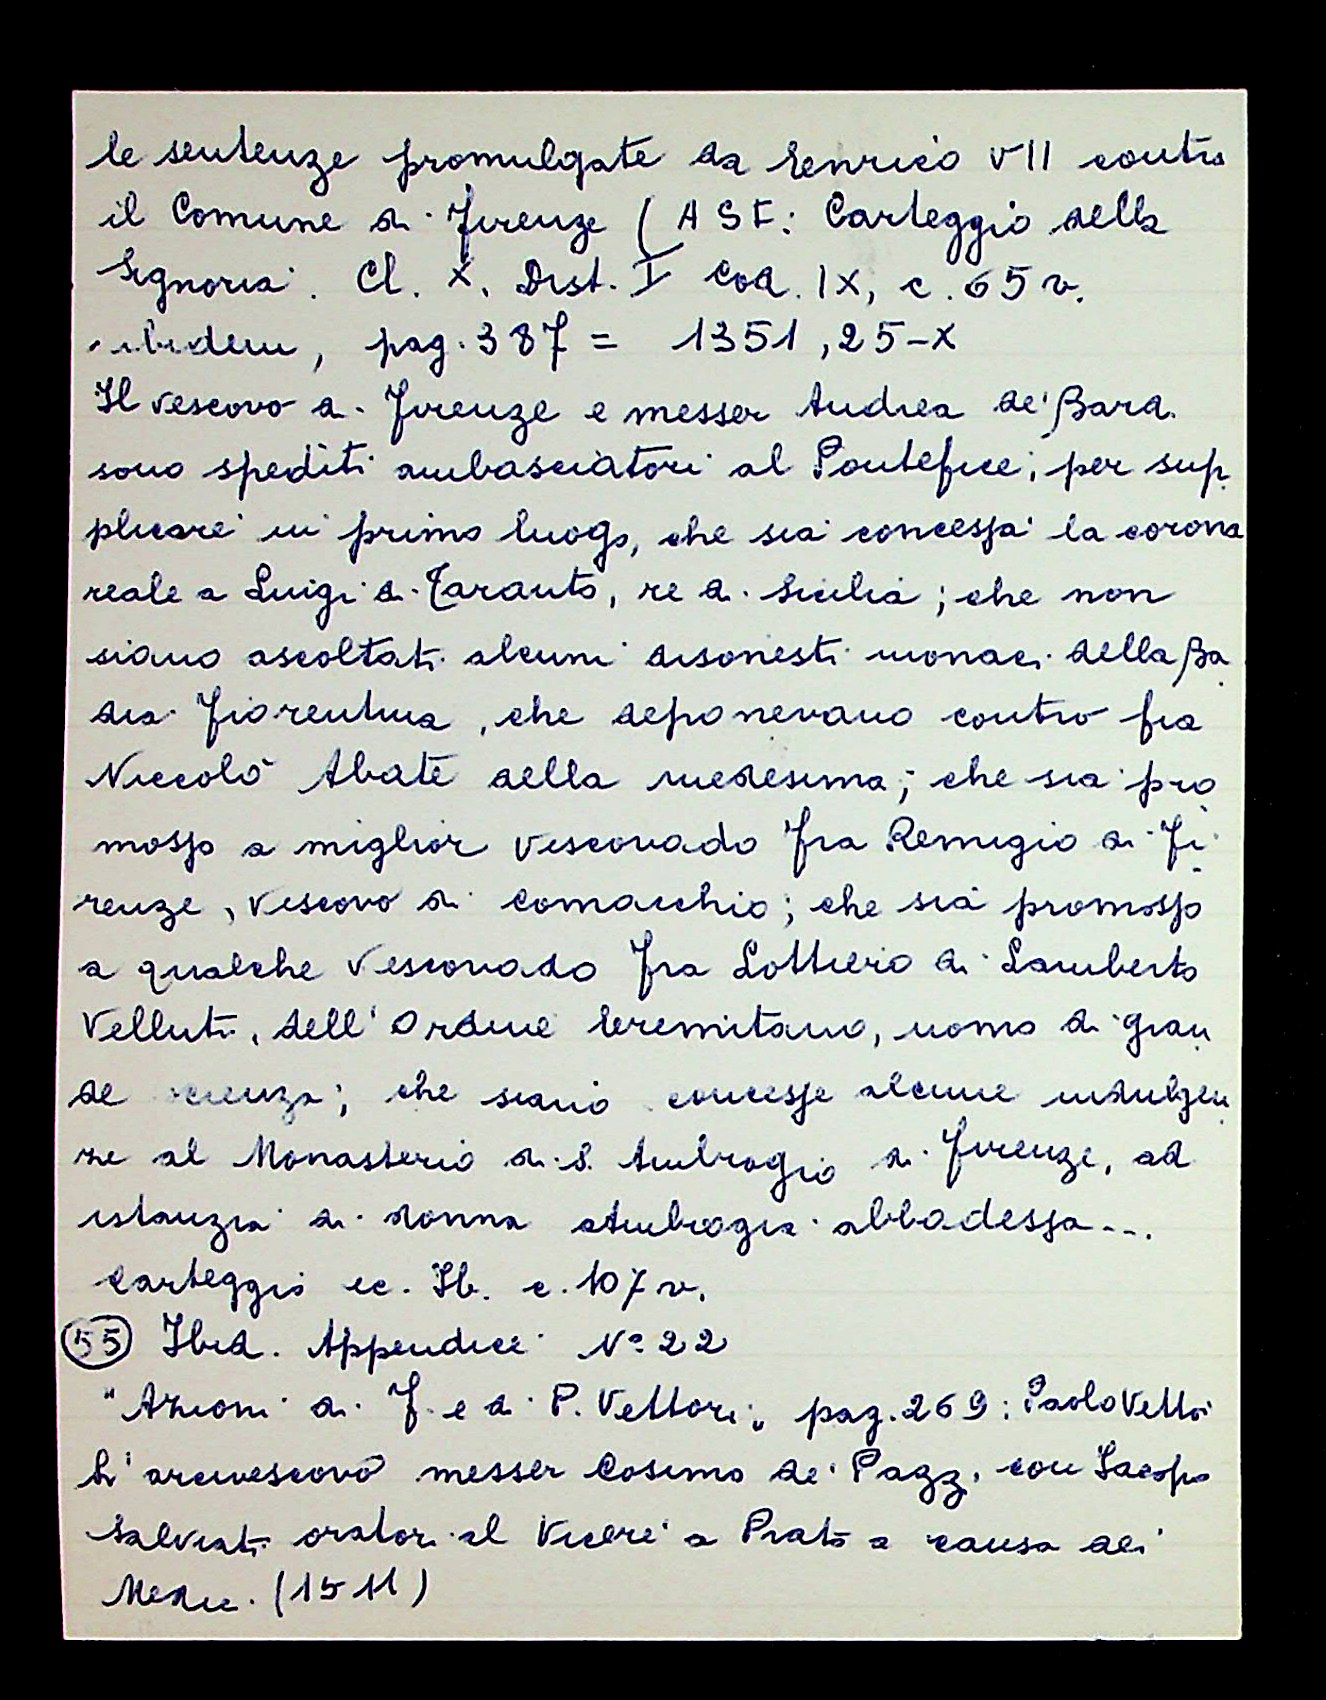 le sentenze promulgate da Henrico VII contro
il Comune di Firenze (ASF: Carteggio della
Signoria. Cl. X. Dist. I Cod. IX, c. 65 v.
ibidem, pag. 387 = 1351, 25-X
Il vescovo di Firenze e messer Andrea de' Bardi
sono spediti ambasciatori al Pontefice; per sup
plicare in primo luogo, che sia concessa la corona
reale a Luigi di Taranto, re di Sicilia; che non
siano ascoltati alcuni disonesti monaci della Ba
dia Fiorentina, che deponevano contro fra
Niccolò Abate della medesima; che sia pro
mosso a miglior vescovado Fra Remigio di Fi
renze, Vescovo di Comacchio; che sia promosso
a qualche Vescovado Fra Lottiero di Lamberto
Velluti, dell'Ordine Heremitano, uomo di gran
de scienza; che siano concesse alcune indulgen
ze al Monasterio di S. Ambrogio di Firenze, ad
istanzia di donna Ambrogia abbadessa...
Carteggio ec. Ib. c. 107 v.
(55) Ibid. Appendice N° 22
"Azioni di F. e di P. Vettori", pag. 269: Paolo Vettori
L'arcivescovo messer Cosimo de' Pazzi con Iacopo
Salviati oratori al Vicerè a Prato a causa dei
Medici. (1511)